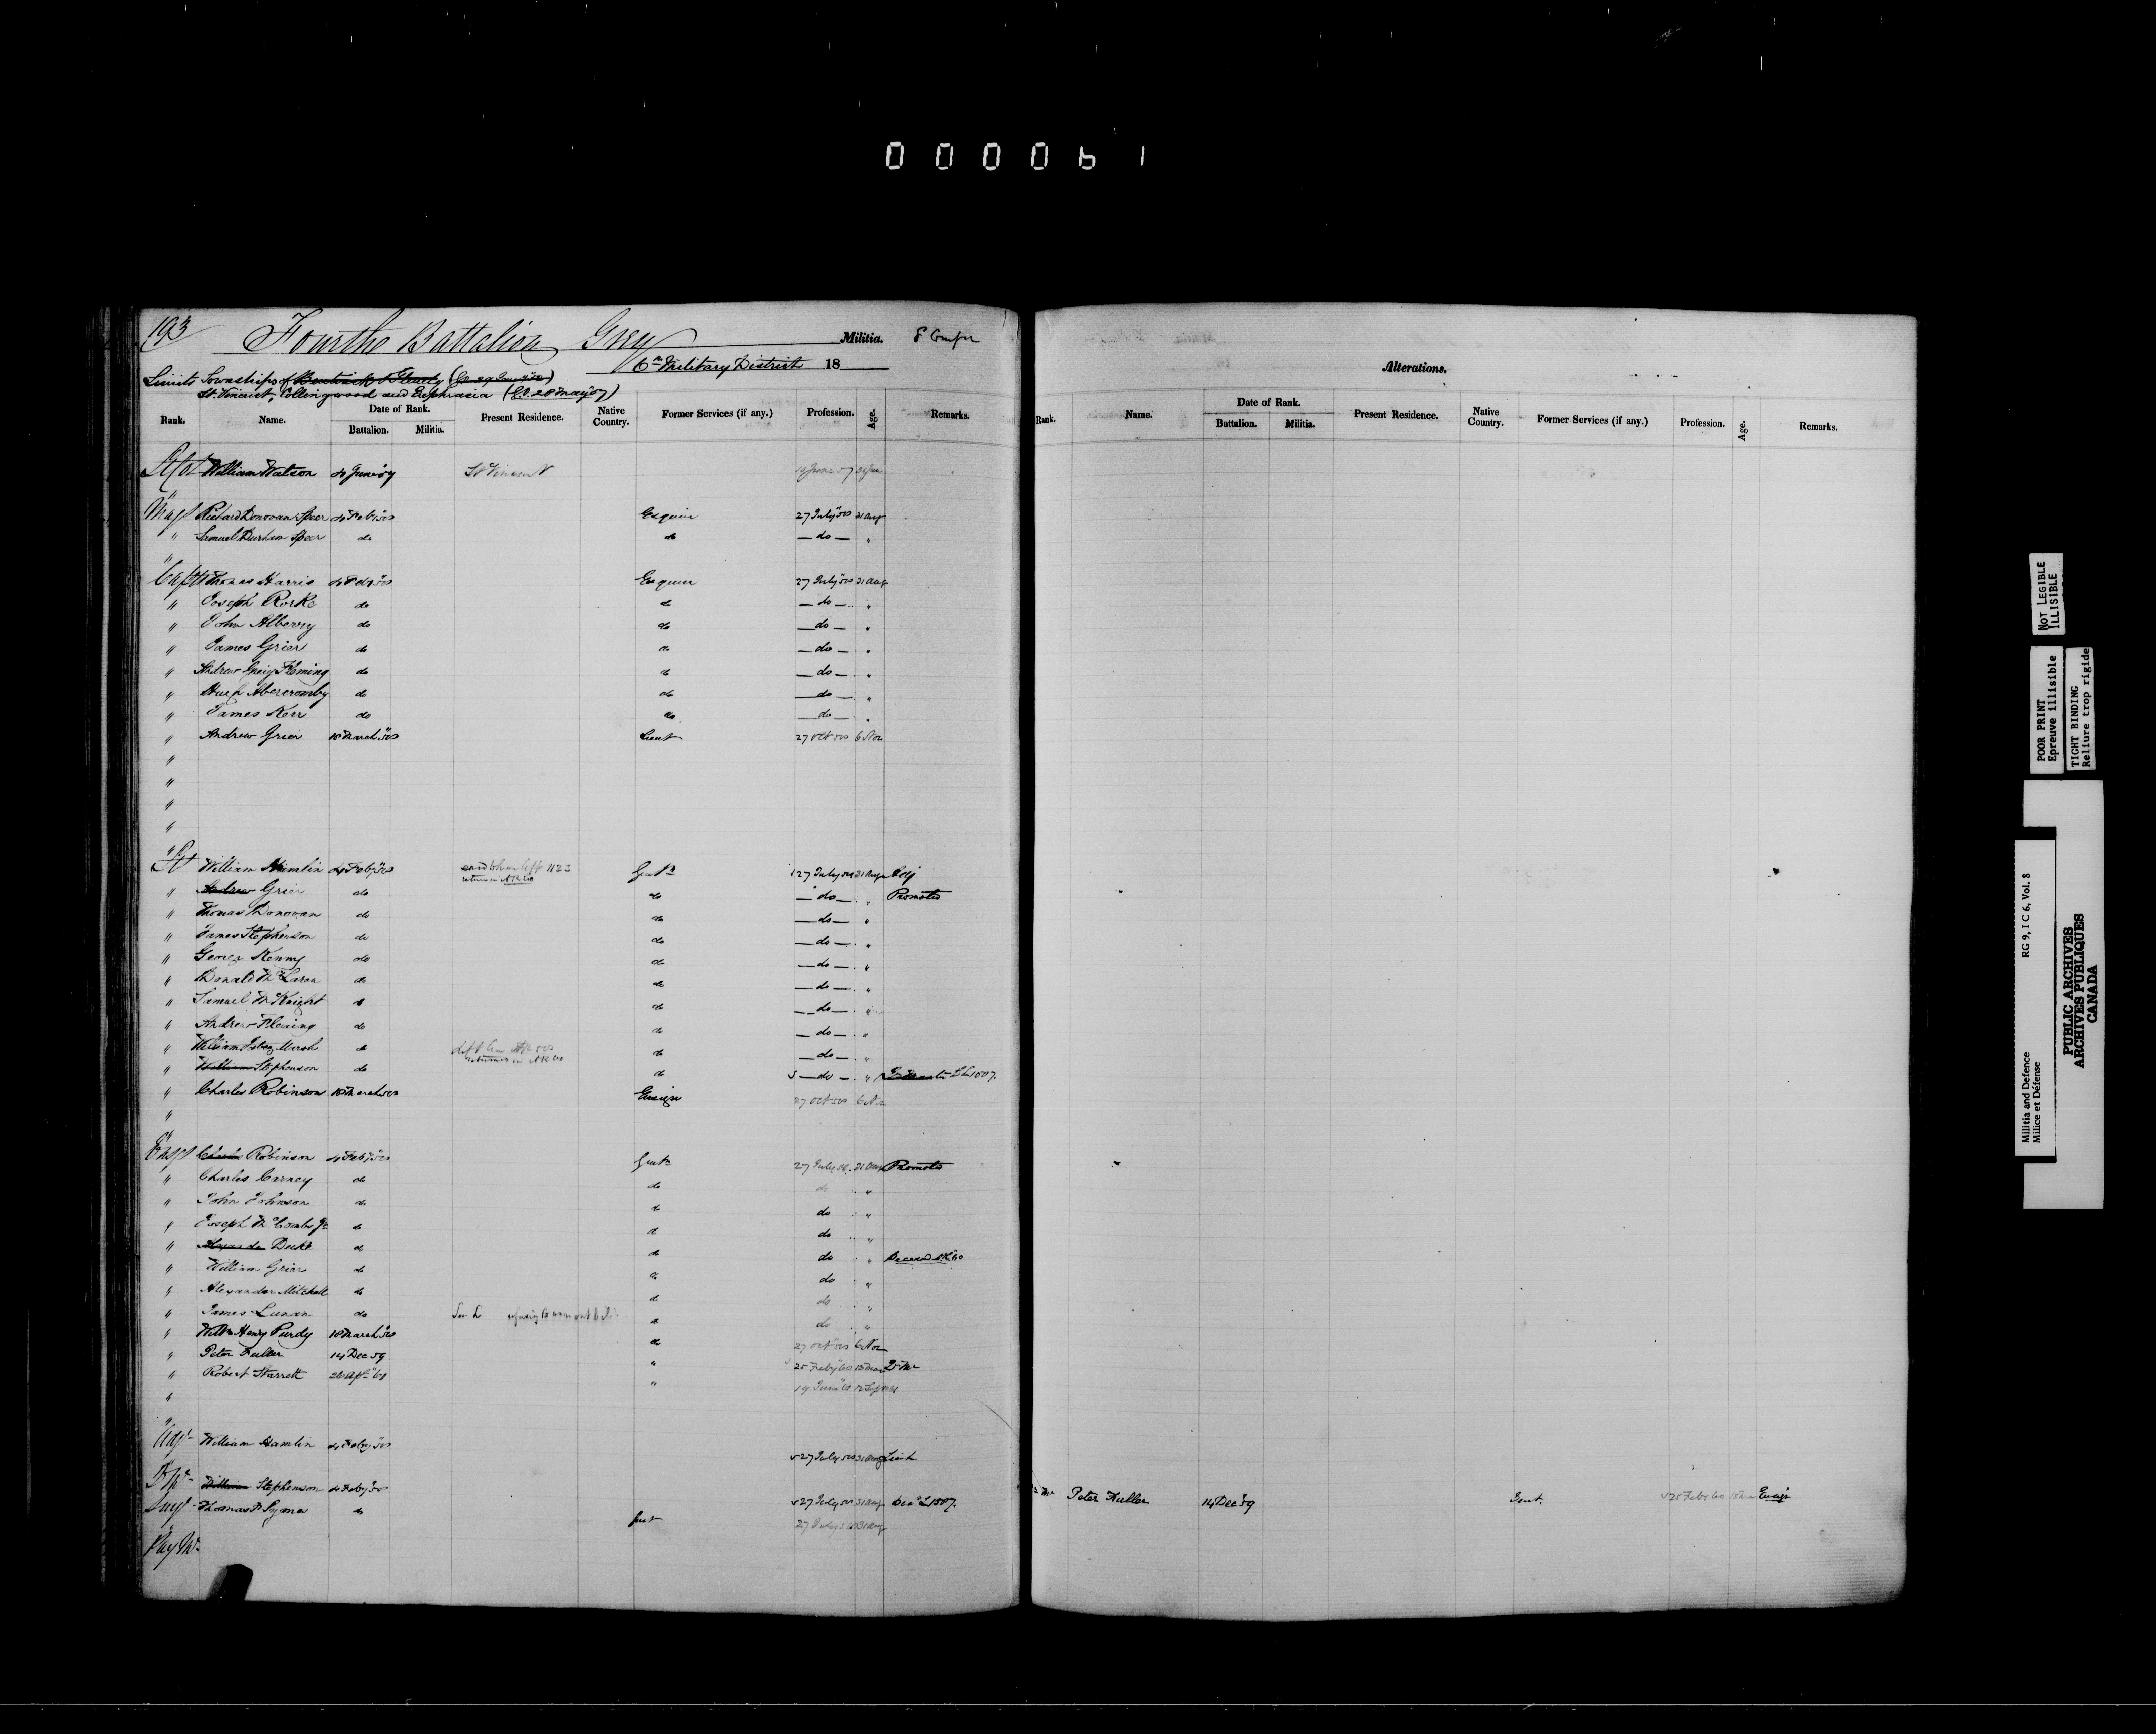 000061
193 Fourth Battalion Grey Militia. 8 Comps
6th Military District 18
Limits Townships of Bentinck & Glenelg
St. Vincent, Collingwood and Euphrasia (G.O. 28 May '57)
Rank. Name. Date of Rank. Battalion. Militia. Present Residence. Native Country. Former Services (if any.) Profession. Age. Remarks.
Lt Col William Watson 4 June 57 St Vincent
Maj Richard Donovan Speer 4 Feby 58 Esquire 27 July 58 31 Aug
" Samuel Durham Speer do do do "
Capt Thomas Harris 4 Feby 58 Esquire 27 July 58 31 Aug
" Joseph Rorke do do do "
" John Alberry do do do "
" James Grier do do do "
" Andrew Greig Fleming do do do "
" Hugh Abercromby do do do "
" James Kerr do do do "
" Andrew Grier 18 March 58 Lieut 27 Oct 58 6 Nov
"
"
"
"
Lt William Hamlin 4 Feby 58 Gent 27 July 58 31 Aug Adj
" Andrew Grier do do do " Promoted
" Thomas Donovan do do do "
" James Stephenson do do do "
" George Kenny do do do "
" Donald McLaren do do do "
" Samuel McKnight do do do "
" Andrew Fleming do do do "
" William Marsh do do do "
" William Stephenson do do do " L 1507.
" Charles Robinson 18 March 58 Ensign 27 Oct 58 6 Nov
"
Ensgn Charles Robinson 4 Feby 58 Gent 27 July 58 31 Aug Promoted
" Charles Carney do do do "
" John Johnson do do do "
" Joseph McCombs Jr do do do "
" Alexander do do do "
" William Grier do do do "
" Alexander Mitchell do do do "
" James Lunan do do do "
" Willm Henry Purdy 18 March 58 do 27 Oct 58 6 Nov
" Peter Fuller 14 Dec 59 " 25 Feby 60 Qr Mr
" Robert Starrett "
"
Adjt William Hamlin 4 Feby 58 27 July 58 31 Aug Lieut
Qr Mr William Stephenson 4 Feby 58 27 July 58 31 Aug L 1507.
Surgn Thomas do Gent 27 July 58 31 Aug
Pay Mr
Alterations.
Rank. Name. Date of Rank. Battalion. Militia. Present Residence. Native Country. Former Services (if any.) Profession. Age. Remarks.
Qr Mr Peter Fuller 14 Dec 59 Gent. 25 Feby 60 Ensign
NOT LEGIBLE
ILLISIBLE
POOR PRINT
Epreuve illisible
TIGHT BINDING
Reliure trop rigide
Militia and Defence
Milice et Défense
RG 9, I C 6, Vol. 8
PUBLIC ARCHIVES
ARCHIVES PUBLIQUES
CANADA